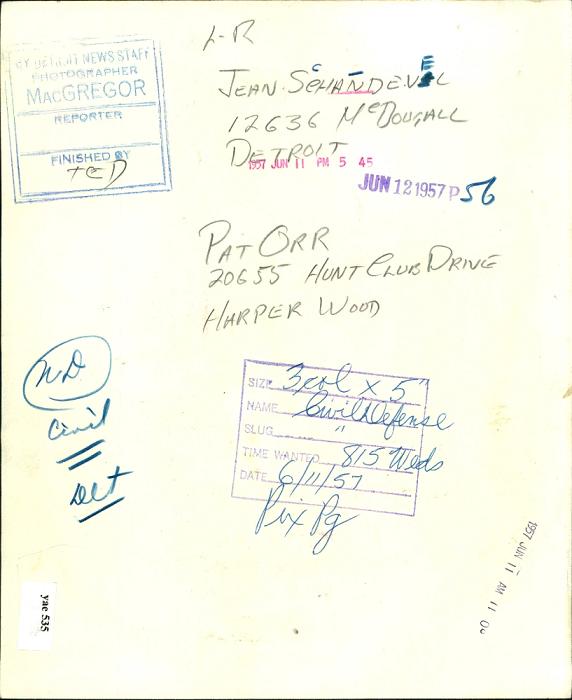 BY DETROIT NEWS STAFF
PHOTOGRAPHER
MACGREGOR
REPORTER
FINISHED BY
TED
L-R
JEAN
12636 McDOUGALL
DETROIT
1957 JUN 11 PM 5 45
JUN 12 1957 P 56
PAT ORR
20655 HUNT CLUB DRIVE
HARPER WOOD
ND
Civil
Det
SIZE 3 col x 5"
NAME Civil Defense
SLUG "
TIME WANTED 815 Weds
DATE 6/11/57
Pix Pg
1957 JUN 11 AM 11 00
yae 535